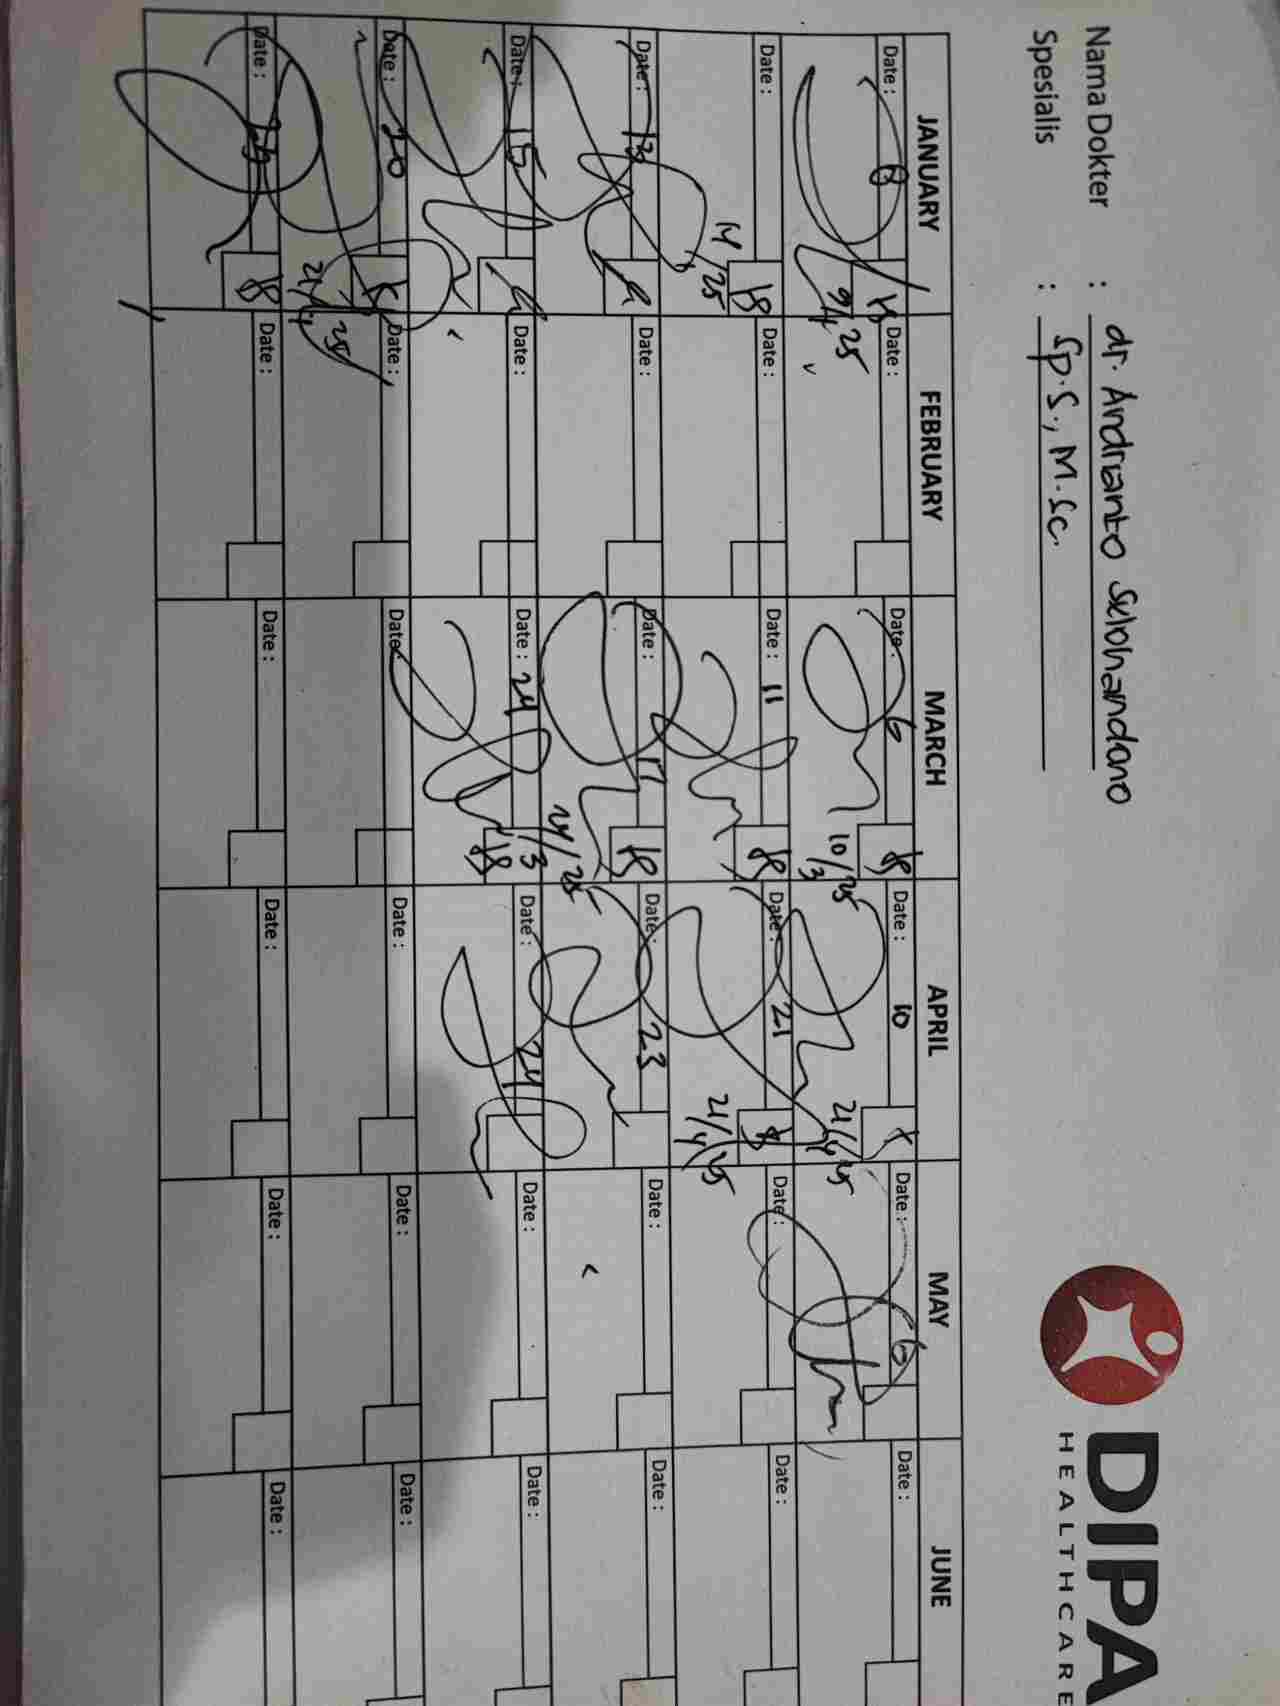 Nama Dokter : dr. Andrianto Selohandono
Spesialis : Sp.S., M.Sc.
DIPA
HEALTHCARE
JANUARY FEBRUARY MARCH APRIL MAY JUNE
Date : 8 Date : Date : 6 Date : 10 Date : 6 Date :
9/4 25 10/3 25 21/4 25
Date : Date : Date : 11 Date : 21 Date : Date :
14 /25 21/4 25
Date : 13 Date : Date : 17 Date : 23 Date : Date :
24/3 25
Date : 15 Date : Date : 24 Date : 24 Date : Date :
Date : 20 Date : Date : Date : Date : Date :
21/4 25
Date : Date : Date : Date : Date : Date :